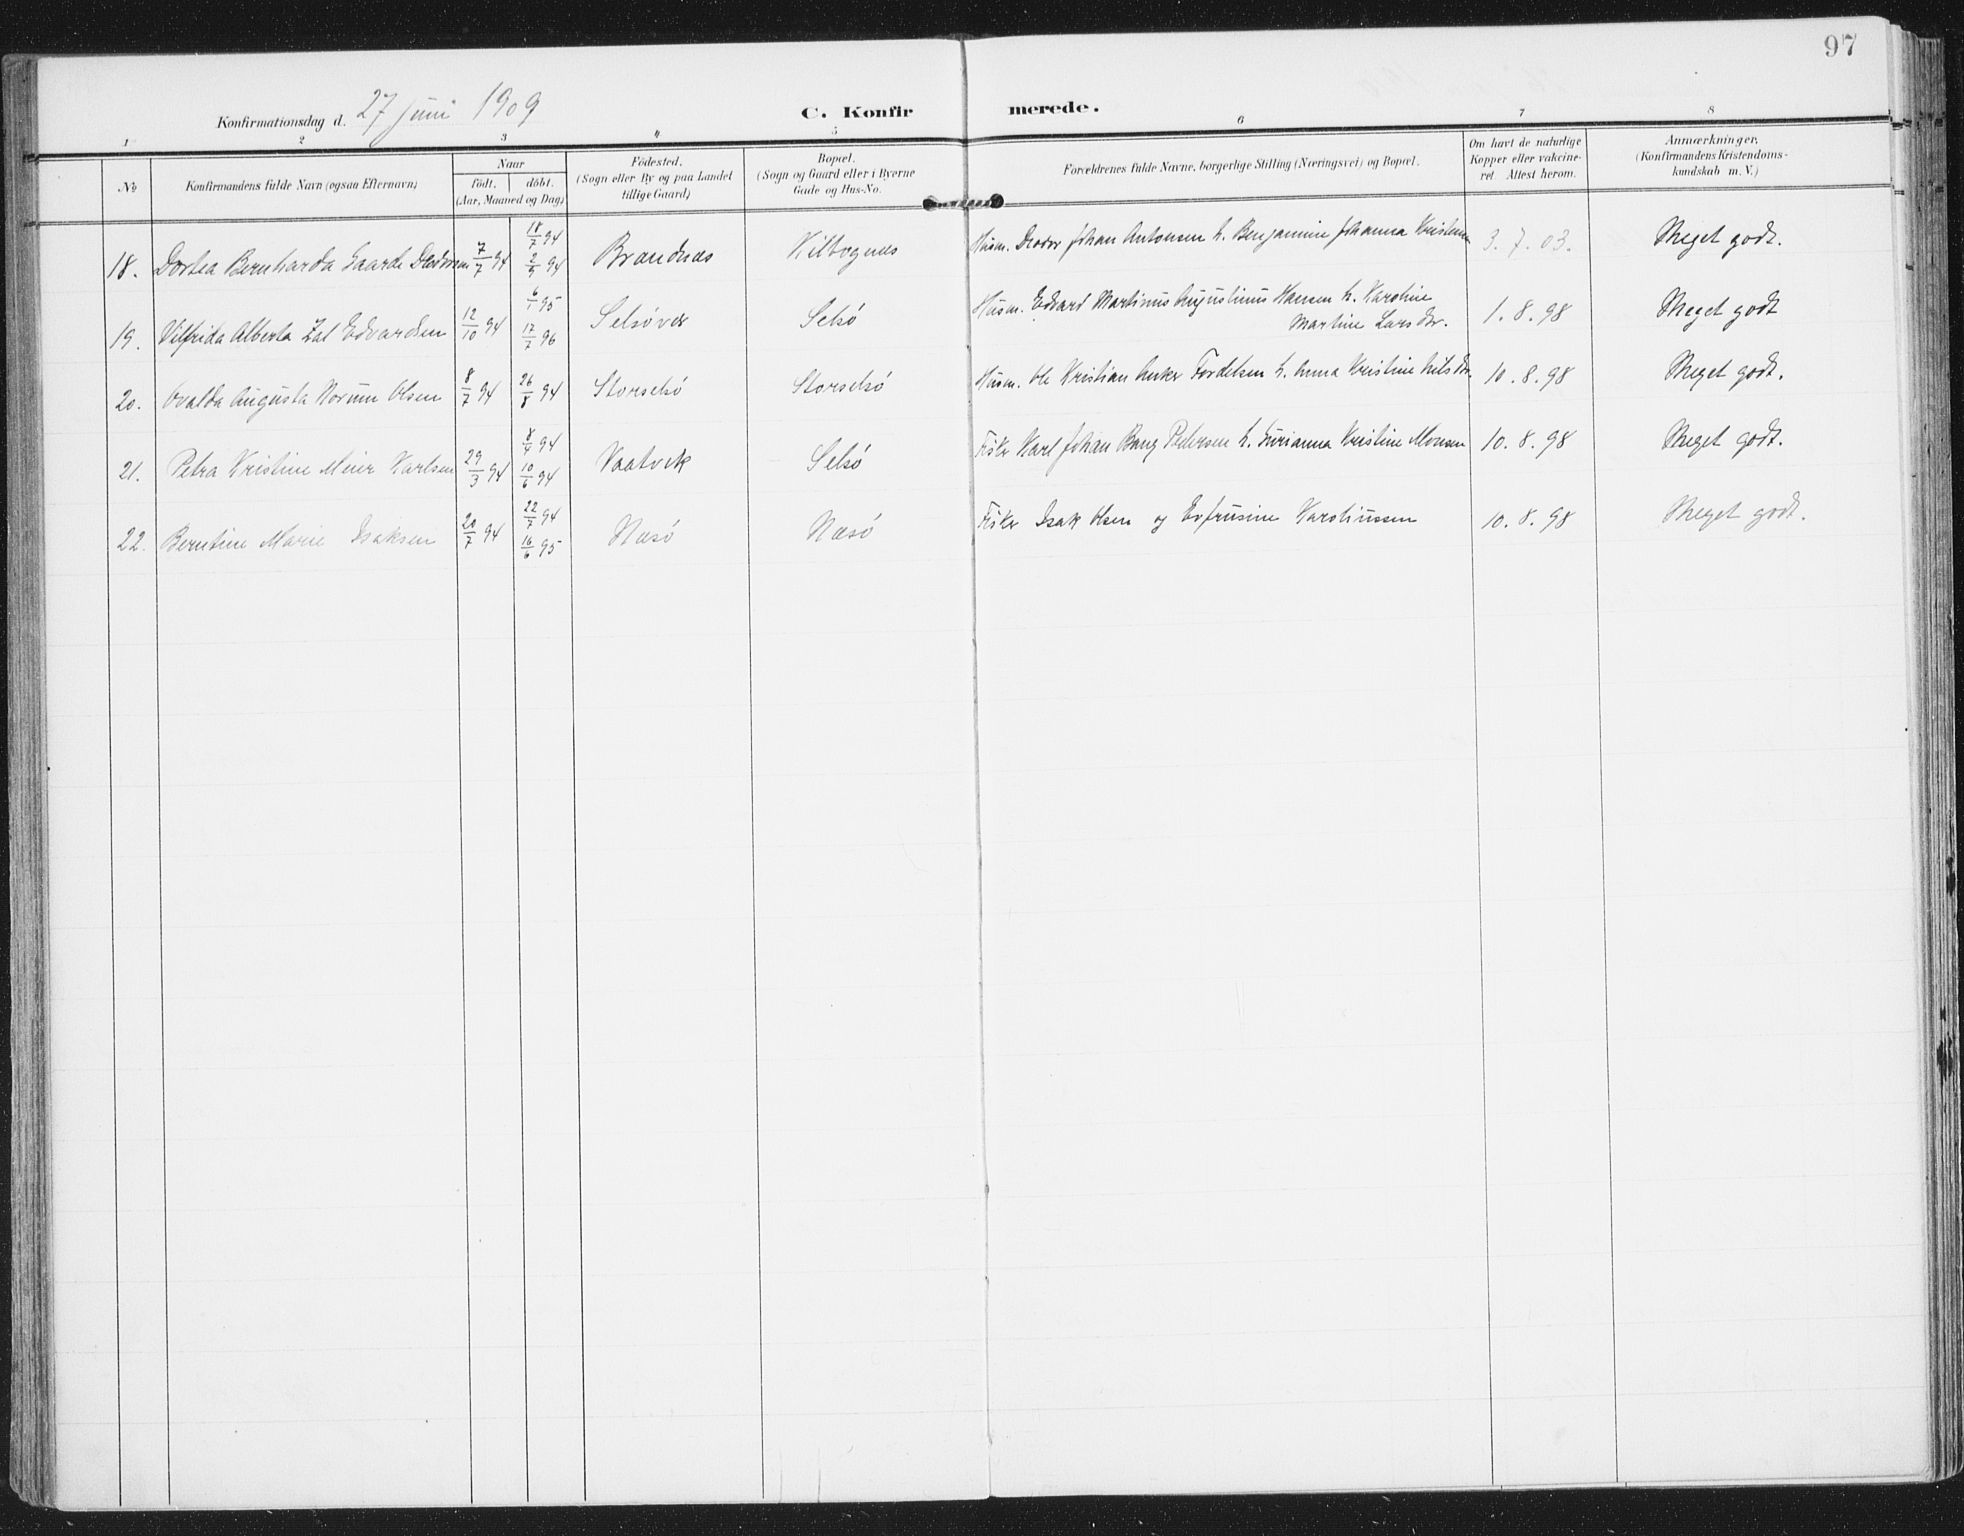 97
Konfirmationsdag d. 27 Juni 1909
C. Konfirmerede.
1 2 3 4 5 6 7 8
No
Konfirmandens fulde Navn (ogsaa Efternavn)
Naar
födt. döbt.
(Aar, Maaned og Dag)
Födested.
(Sogn eller By og paa Landet
tillige Gaard)
Bopæl.
(Sogn og Gaard eller i Byerne
Gade og Hus-No.
Forældrenes fulde Navne, borgerlige Stilling (Næringsvei) og Bopæl.
Om havt de naturlige
Kopper eller vakcine-
ret. Attest herom.
Anmærkninger.
(Konfirmandens Kristendoms-
kundskab m. V.)
18. Dortea Bernharda Gaarde Deodorsen 7/7 94 18/7 94 2/9 94 Brandnæs Kilbognes Husm. Deodor Johan Antonsen h. Benjamine Johanna Kristensen 3.7.03. Meget godt.
19. Vilfrida Alberta Zal Edvardsen 12/10 94 6/1 95 17/7 96 Selsövær Selsö Husm. Edvard Martinus Augustinus Hansen h. Karoline
Martine Larsdtr. 1.8.98 Meget godt
20. Ovalda Augusta Norum Olsen 8/7 94 26/8 94 Storselsö Storselsö Husm. Ole Kristian Anker Fordelsen h. Anna Kristine Nilsdtr. 10.8.98 Meget godt.
21. Petra Kristine Meier Karlsen 29/3 94 8/4 94 10/6 94 Vaatvik Selsö Fisker Karl Johan Bang Pedersen h. Kristine Monsen 10.8.98 Meget godt.
22. Berntine Marie Isaksen 20/7 94 22/7 94 16/6 95 Næsö Næsö Fisker Isak Olsen og Evfrusine Karoliussen 10.8.98 Meget godt.